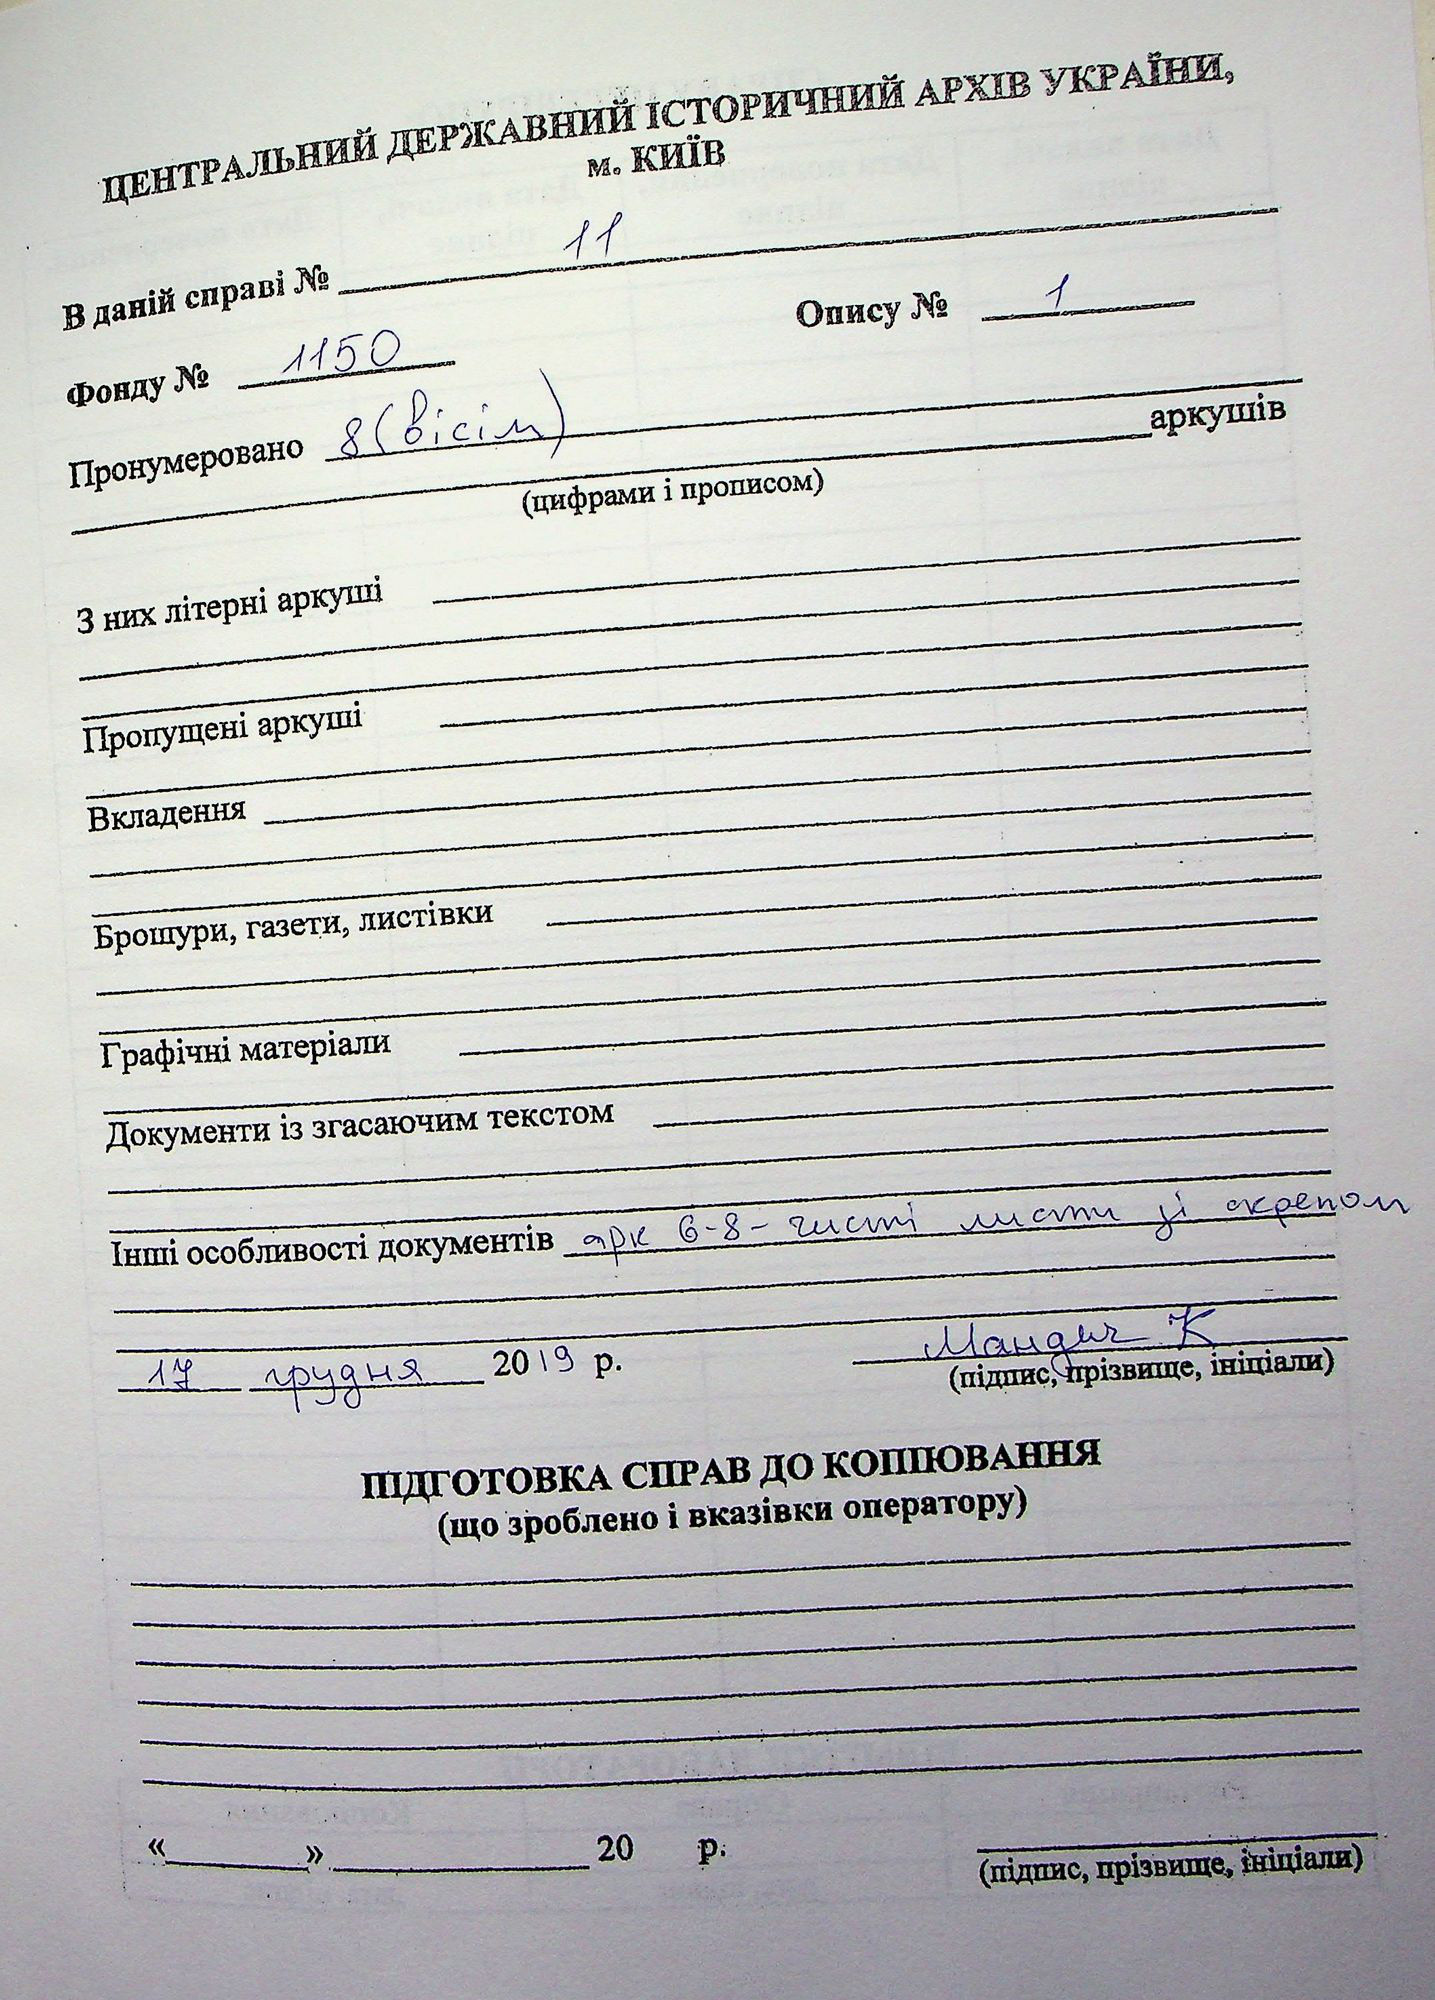 ЦЕНТРАЛЬНИЙ ДЕРЖАВНИЙ ІСТОРИЧНИЙ АРХІВ УКРАЇНИ,
м. КИЇВ
В даній справі № 11
Фонду № 1150 Опису № 1
Пронумеровано 8 (вісім)
аркушів
(цифрами і прописом)
З них літерні аркуші
Пропущені аркуші
Вкладення
Брошури, газети, листівки
Графічні матеріали
Документи із згасаючим текстом
Інші особливості документів арк 6-8 - чисті листи зі скрепом
17 грудня 2019 р.
(підпис, прізвище, ініціали)
ПІДГОТОВКА СПРАВ ДО КОПІЮВАННЯ
(що зроблено і вказівки оператору)
« » 20 р.
(підпис, прізвище, ініціали)